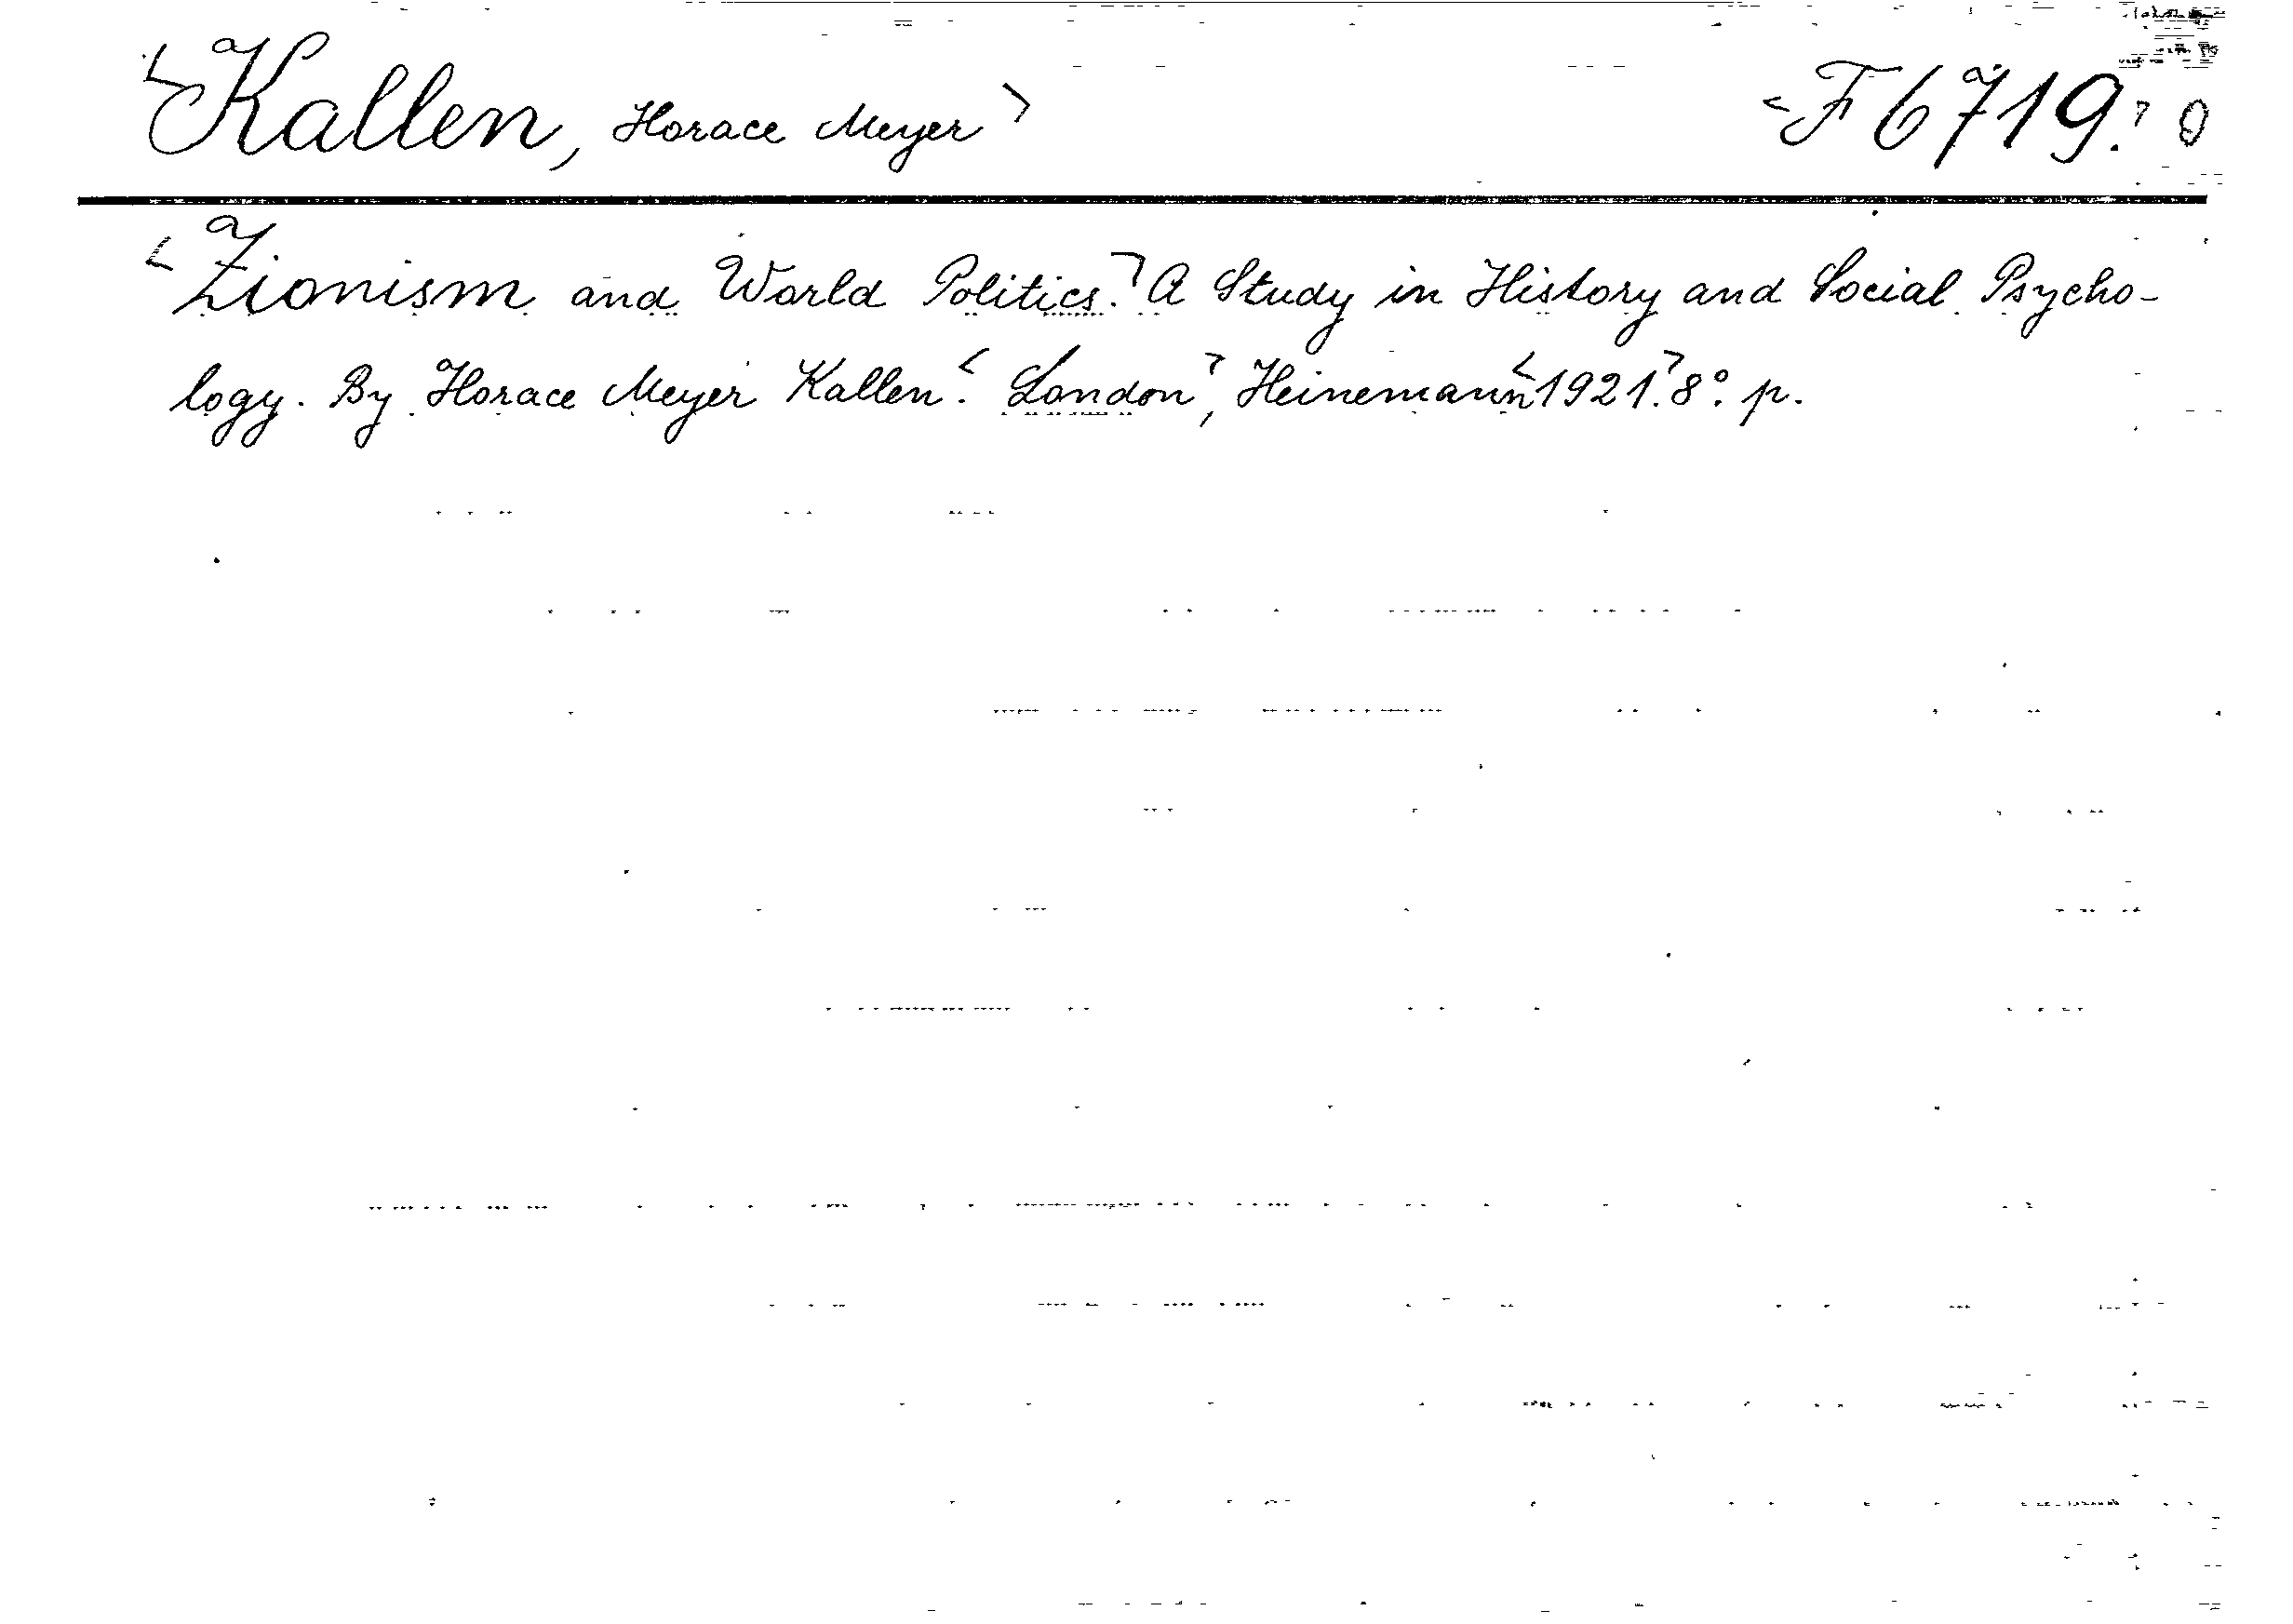 Kallen, Horace Meyer F 6719.
Zionism and World Politics. A Study in History and Social Psycho-
logy. By Horace Meyer Kallen. London, Heinemann 1921. 8°. p.